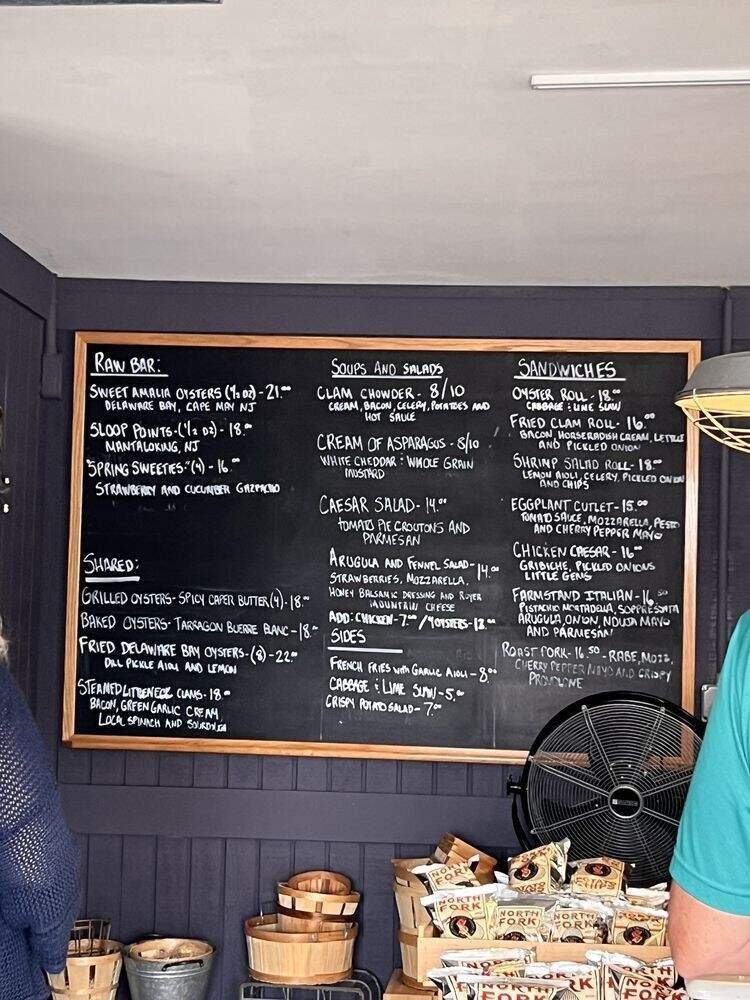 RAW BAR:
SWEET AMALIA OYSTERS (1/2 DZ) - 21.00
DELAWARE BAY, CAPE MAY NJ
SLOOP POINTS - (1/2 DZ) - 18.00
MANTALOKING, NJ
SPRING SWEETIES - (4) - 16.00
STRAWBERRY AND CUCUMBER GAZPACHO
SHARED:
GRILLED OYSTERS - SPICY CAPER BUTTER (4) - 18.00
BAKED OYSTERS - TARRAGON BUERRE BLANC - 18.00
FRIED DELAWARE BAY OYSTERS - (8) - 22.00
DILL PICKLE AIOLI AND LEMON
STEAMED LITTLENECK CLAMS - 18.00
BACON, GREEN GARLIC CREAM,
LOCAL SPINACH AND SOURDOUGH
SOUPS AND SALADS
CLAM CHOWDER - 8/10
CREAM, BACON, CELERY, POTATOES AND
HOT SAUCE
CREAM OF ASPARAGUS - 8/10
WHITE CHEDDAR : WHOLE GRAIN
MUSTARD
CAESAR SALAD - 14.00
TOMATO PIE CROUTONS AND
PARMESAN
ARUGULA AND FENNEL SALAD - 14.00
STRAWBERRIES, MOZZARELLA,
HONEY BALSAMIC DRESSING AND
MOUNTAIN CHEESE
ADD: CHICKEN - 7.00 / 4 OYSTERS - 12.00
SIDES
FRENCH FRIES with GARLIC AIOLI - 8.00
CABBAGE : LIME SLAW - 5.00
CRISPY POTATO SALAD - 7.00
SANDWICHES
OYSTER ROLL - 18.00
CABBAGE : LIME SLAW
FRIED CLAM ROLL - 16.00
BACON, HORSERADISH CREAM, LETTUCE
AND PICKLED ONION
SHRIMP SALAD ROLL - 18.00
LEMON AIOLI, CELERY, PICKLED ONION
AND CHIPS
EGGPLANT CUTLET - 15.00
TOMATO SAUCE, MOZZARELLA, PESTO
AND CHERRY PEPPER MAYO
CHICKEN CAESAR - 16.00
GRIBICHE, PICKLED ONIONS
LITTLE GEMS
FARMSTAND ITALIAN - 16.50
PISTACHIO MORTADELLA, SOPPRESSATA
ARUGULA, ONION, NDUJA MAYO
AND PARMESAN
ROAST PORK - 16.50 - RABE, MOZZ,
CHERRY PEPPER MAYO AND CRISPY
PROVOLONE
NORTH
FORK
NORTH
FORK
POTATO
CHIPS
NORTH
FORK
NORTH
FORK
NORTH
FORK
NORTH
FORK
NORTH
FORK